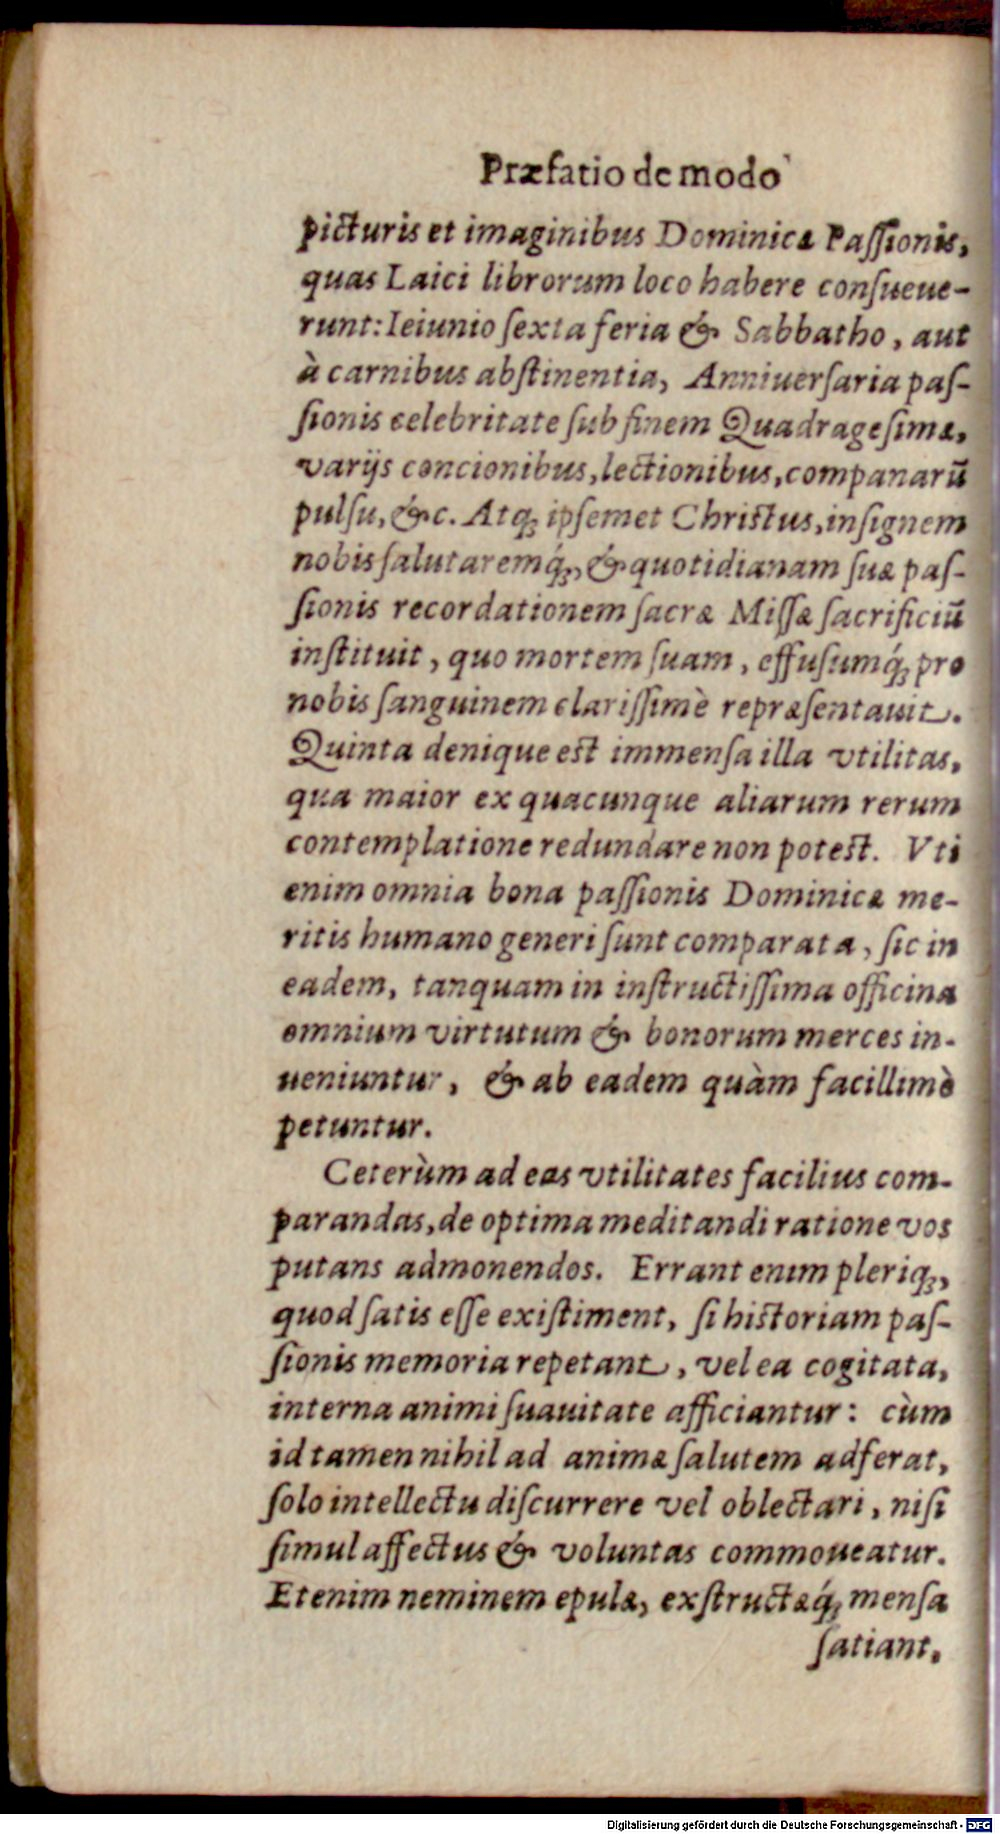 Præfatio de modo
picturis et imaginibus Dominicæ Paſſionis,
quas Laici librorum loco habere conſueue-
runt: Ieiunio ſexta feria & Sabbatho, aut
à carnibus abſtinentia, Anniuerſaria paſ-
ſionis celebritate ſub finem Quadrageſimæ,
varijs concionibus, lectionibus, companarū
pulſu, &c. Atq; ipſemet Chriſtus, inſignem
nobis ſalutaremq́;, & quotidianam ſuæ paſ-
ſionis recordationem ſacræ Miſſæ ſacrificiū
inſtituit, quo mortem ſuam, effuſumq́; pro
nobis ſanguinem clariſſimè repræſentauit.
Quinta denique eſt immenſa illa vtilitas,
qua maior ex quacunque aliarum rerum
contemplatione redundare non poteſt. Vti
enim omnia bona paſſionis Dominicæ me-
ritis humano generi ſunt comparata, ſic in
eadem, tanquam in inſtructiſſima officina
omnium virtutum & bonorum merces in-
ueniuntur, & ab eadem quàm facillimè
petuntur.
Ceterùm ad eas vtilitates facilius com-
parandas, de optima meditandi ratione vos
putans admonendos. Errant enim pleriq;,
quod ſatis eſſe exiſtiment, ſi hiſtoriam paſ-
ſionis memoria repetant, vel ea cogitata,
interna animi ſuauitate afficiantur: cùm
id tamen nihil ad animæ ſalutem adferat,
ſolo intellectu diſcurrere vel oblectari, niſi
ſimul affectus & voluntas commoueatur.
Etenim neminem epulæ, exſtructæq́; menſa
ſatiant,
Digitalisierung gefördert durch die Deutsche Forschungsgemeinschaft - DFG